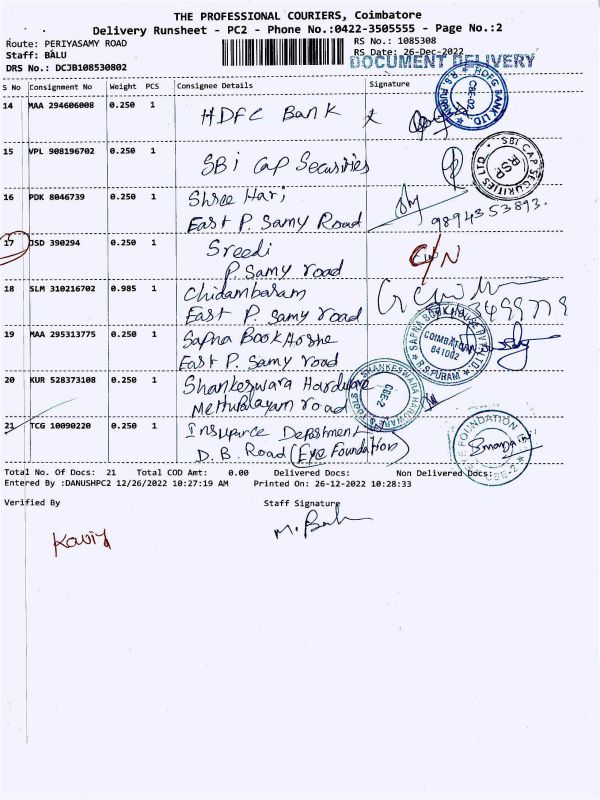 THE PROFESSIONAL COURIERS, Coimbatore
Delivery Runsheet - PC2 - Phone No.:0422-3505555 - Page No.:2
Route: PERIYASAMY ROAD RS No.: 1085308
Staff: BALU RS Date: 26-Dec-2022
DRS No.: DCJB108530802 DOCUMENT DELIVERY
S No Consignment No Weight PCS Consignee Details Signature
14 MAA 294606008 0.250 1 HDFC Bank
HDFC BANK LTD R.S. PURAM CBE-02
15 VPL 908196702 0.250 1 SBi Cap Securities
SBI CAP SECURITIES LTD R.S.P.
16 PDK 8046739 0.250 1 Shree Hari
East P. Samy Road 9894353893.
17 JSD 390294 0.250 1 Sreedi C/N
P. Samy road
18 SLM 310216702 0.985 1 Chidambaram
East P. Samy road
19 MAA 295313775 0.250 1 Sapna Book House
East P. Samy road
SAPNA BOOK HOUSE PVT. LTD. COIMBATORE 641002 R.S.PURAM
20 KUR 528373108 0.250 1 Shankeswara Hardware
Mettupalayam road
SHANKESWARA HARDWARE CBE-2
21 TCG 10090220 0.250 1 Insurance Department
D. B. Road (Eye Foundation)
EYE FOUNDATION CBE-2
Total No. Of Docs: 21 Total COD Amt: 0.00 Delivered Docs: Non Delivered Docs:
Entered By :DANUSHPC2 12/26/2022 10:27:19 AM Printed On: 26-12-2022 10:28:33
Verified By Staff Signature
Kaviy M. Balu